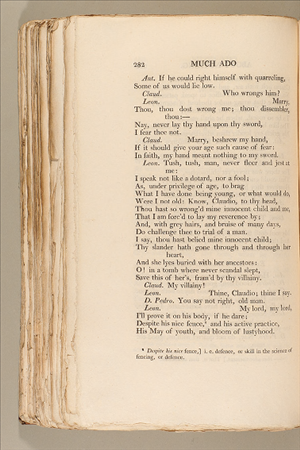 282 MUCH ADO
Ant. If he could right himself with quarreling,
Some of us would lie low.
Claud. Who wrongs him?
Leon. Marry,
Thou, thou dost wrong me; thou dissembler,
thou:—
Nay, never lay thy hand upon thy sword,
I fear thee not.
Claud. Marry, beshrew my hand,
If it should give your age such cause of fear:
In faith, my hand meant nothing to my sword.
Leon. Tush, tush, man, never fleer and jest at
me:
I speak not like a dotard, nor a fool;
As, under privilege of age, to brag
What I have done being young, or what would do,
Were I not old: Know, Claudio, to thy head,
Thou hast so wrong'd mine innocent child and me,
That I am forc'd to lay my reverence by;
And, with grey hairs, and bruise of many days,
Do challenge thee to trial of a man.
I say, thou hast belied mine innocent child;
Thy slander hath gone through and through her
heart,
And she lyes buried with her ancestors:
O! in a tomb where never scandal slept,
Save this of her's, fram'd by thy villainy.
Claud. My villainy!
Leon. Thine, Claudio; thine I say.
D. Pedro. You say not right, old man.
Leon. My lord, my lord,
I'll prove it on his body, if he dare;
Despite his nice fence,⁴ and his active practice,
His May of youth, and bloom of lustyhood.
⁴ Despite his nice fence,] i. e. defence, or skill in the science of
fencing, or defence.